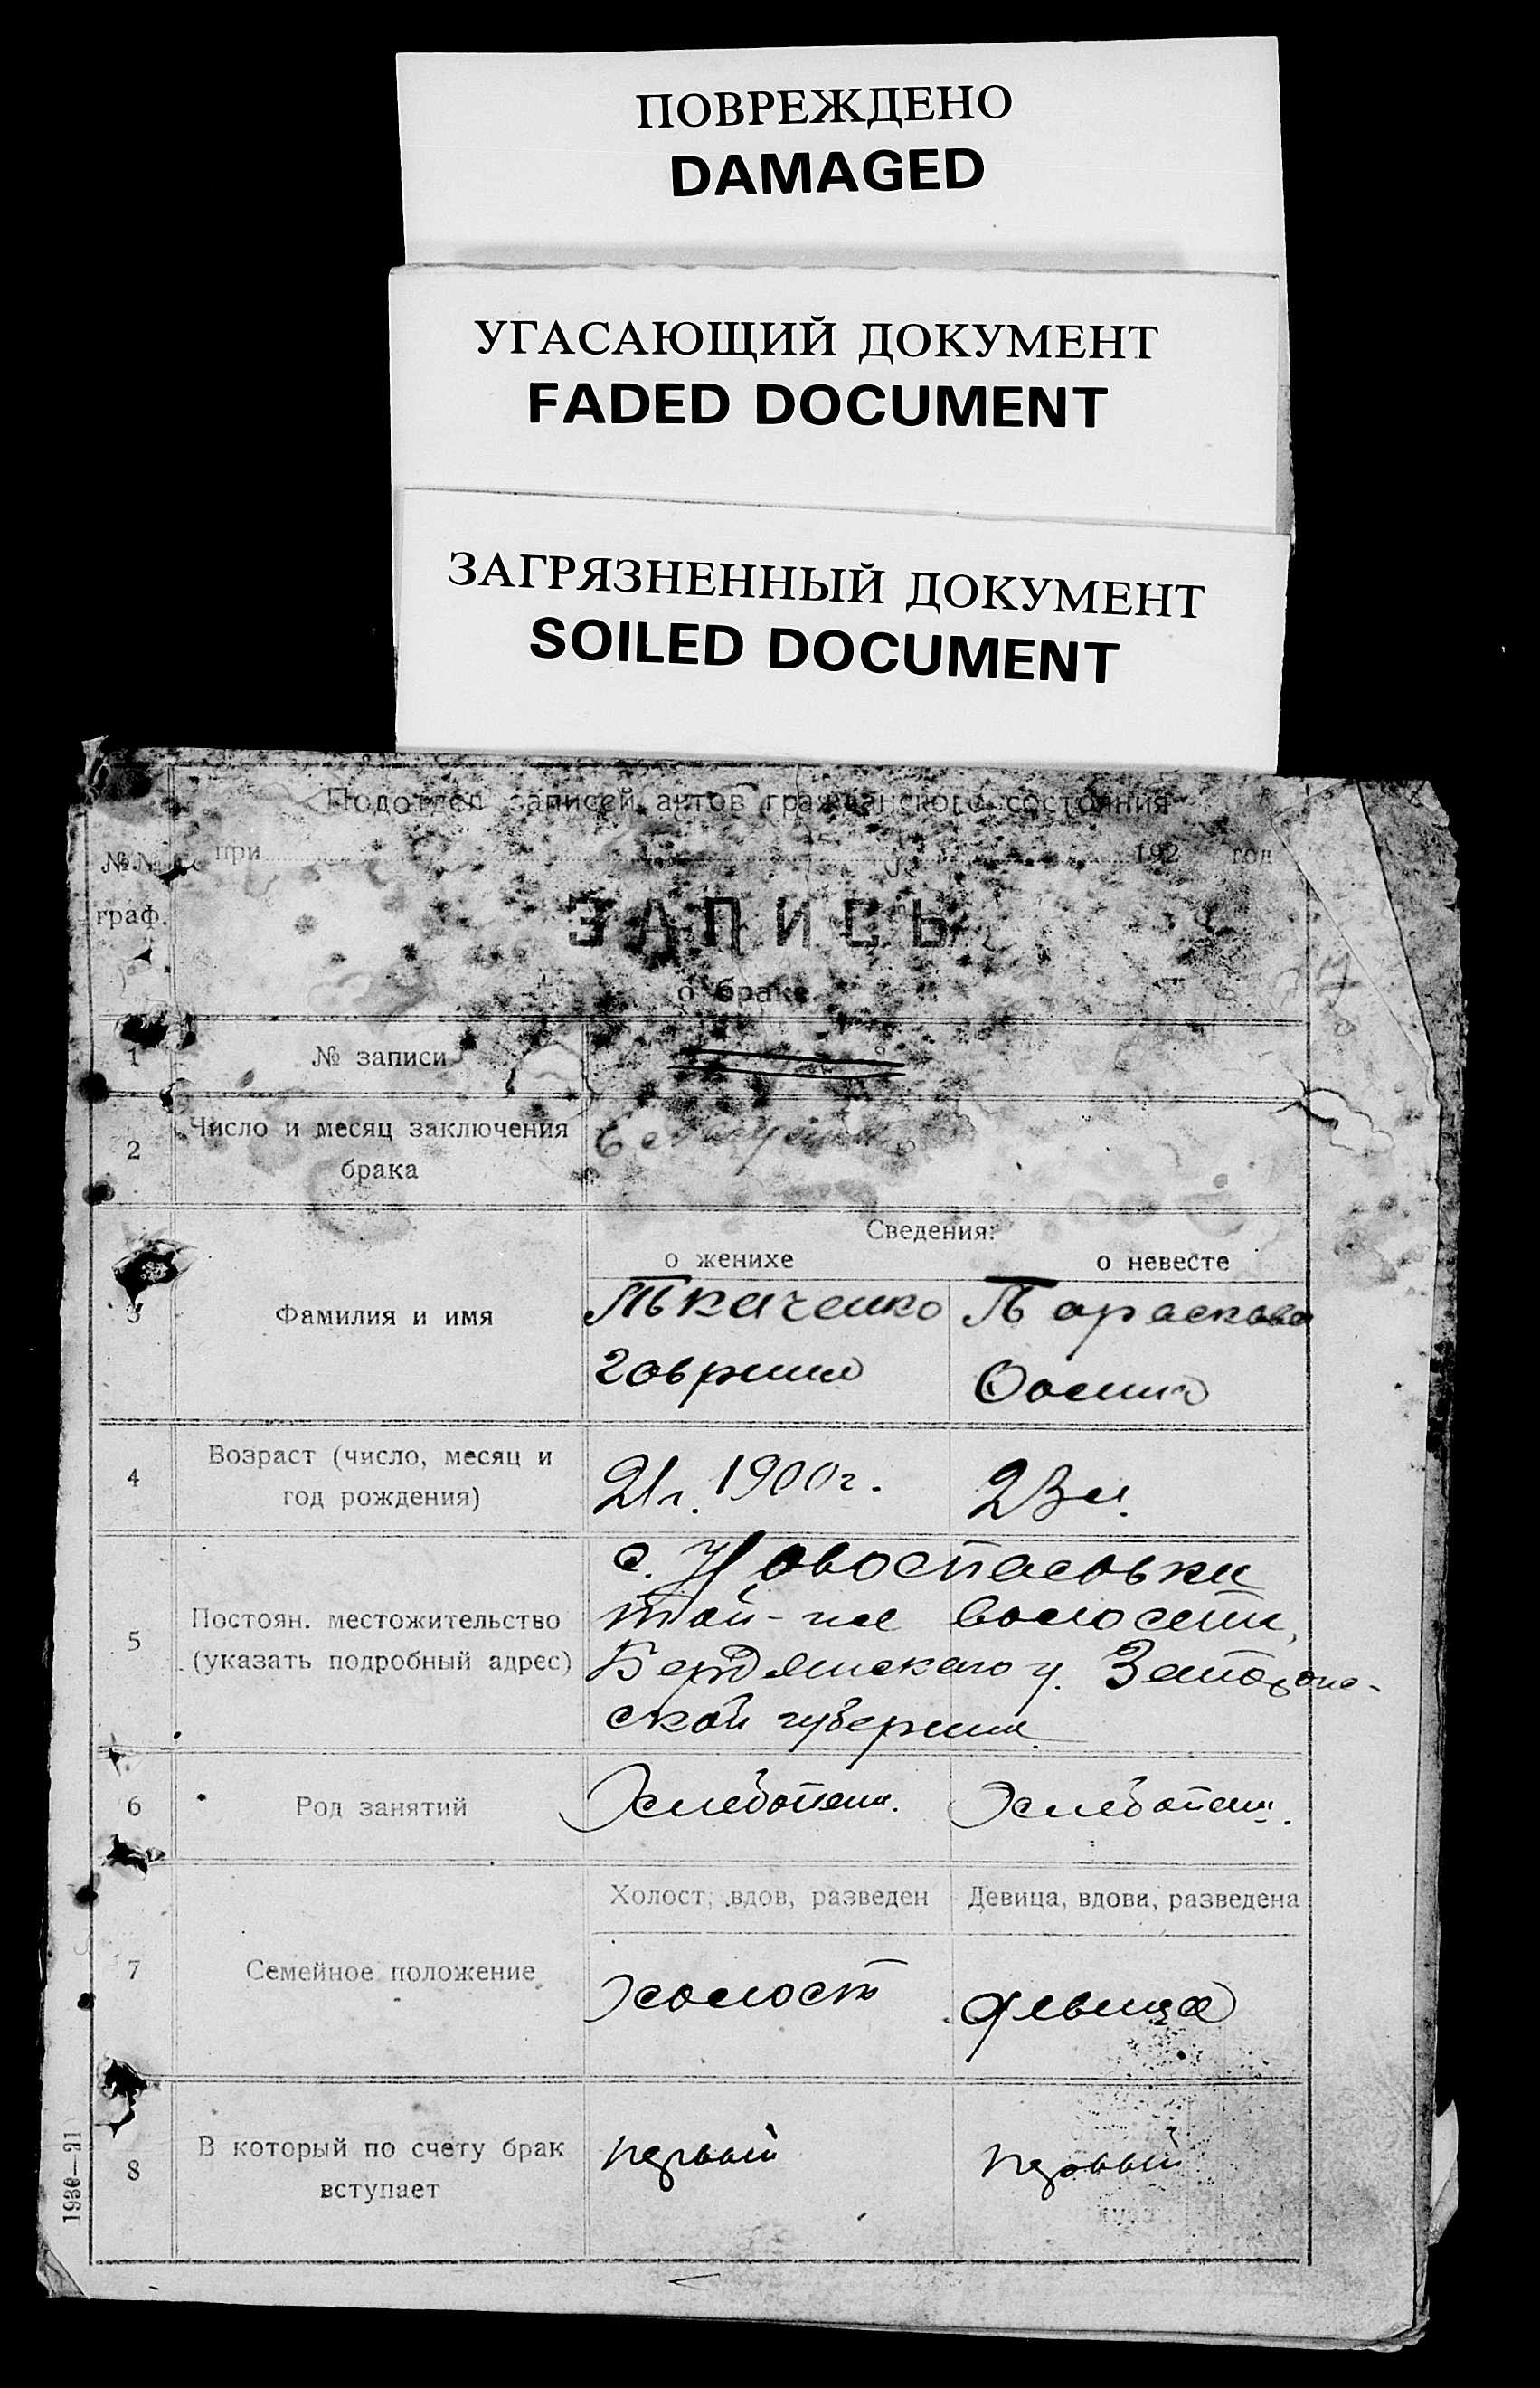 ПОВРЕЖДЕНО
DAMAGED
УГАСАЮЩИЙ ДОКУМЕНТ
FADED DOCUMENT
ЗАГРЯЗНЕННЫЙ ДОКУМЕНТ
SOILED DOCUMENT
Подотдел записей актов гражданского состояния
№№ при 192 год
граф.
ЗАПИСЬ
о браке
1 № записи
2 Число и месяц заключения
брака
Сведения:
о женихе о невесте
3 Фамилия и имя Ткаченко
4 Возраст (число, месяц и
год рождения) 21 г. 1900 г. 23
5 Постоян. местожительство
(указать подробный адрес) с. Новоспасовки
той-же волости,
Бердянскаго у.
ской губернии
6 Род занятий Хлебопаш. Хлебопаш.
Холост, вдов, разведен Девица, вдова, разведена
7 Семейное положение холост девица
8 В который по счету брак
вступает первый первый